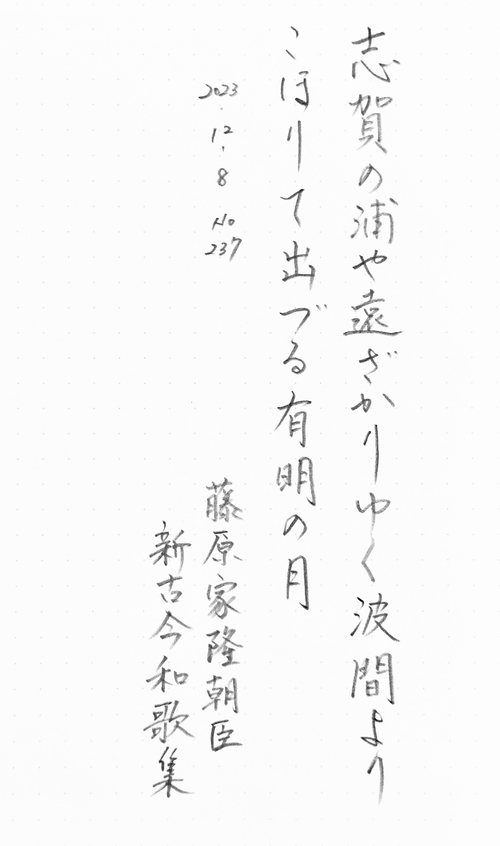 志賀の浦や遠ざかりゆく波間より
こほりて出づる有明の月
2023.12.8 No 237
藤原家隆朝臣
新古今和歌集